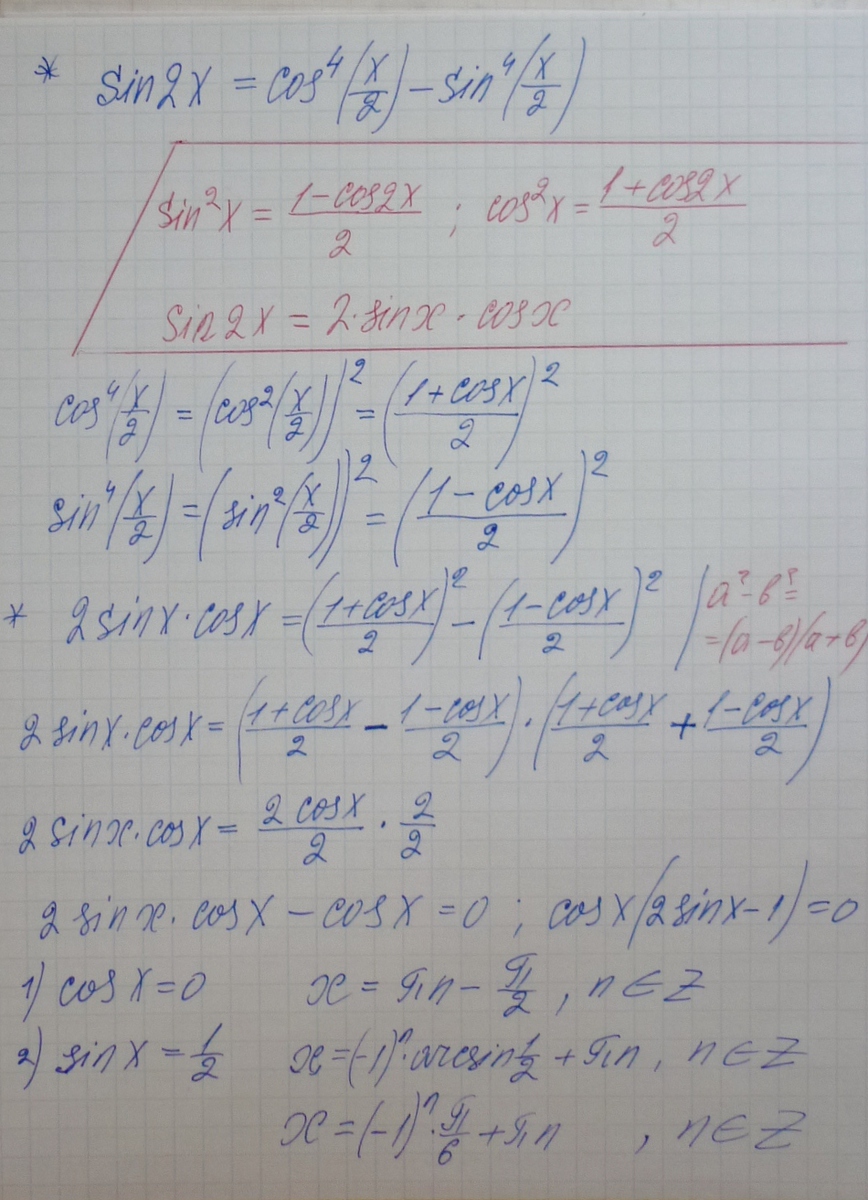 * sin2x = cos⁴(x/2) − sin⁴(x/2)
sin²x = (1−cos2x)/2 ; cos²x = (1+cos2x)/2
sin2x = 2·sinx·cosx
cos⁴(x/2) = (cos²(x/2))² = ((1+cosx)/2)²
sin⁴(x/2) = (sin²(x/2))² = ((1−cosx)/2)²
* 2sinx·cosx = ((1+cosx)/2)² − ((1−cosx)/2)² | a²−b²=
=(a−b)(a+b)
2sinx·cosx = ((1+cosx)/2 − (1−cosx)/2)·((1+cosx)/2 + (1−cosx)/2)
2sinx·cosx = (2cosx)/2 · 2/2
2sinx·cosx − cosx = 0 ; cosx(2sinx−1)=0
1) cosx=0 x = πn − π/2 , n∈Z
2) sinx = 1/2 x=(−1)ⁿ·arcsin1/2 + πn , n∈Z
x=(−1)ⁿ·π/6 + πn , n∈Z